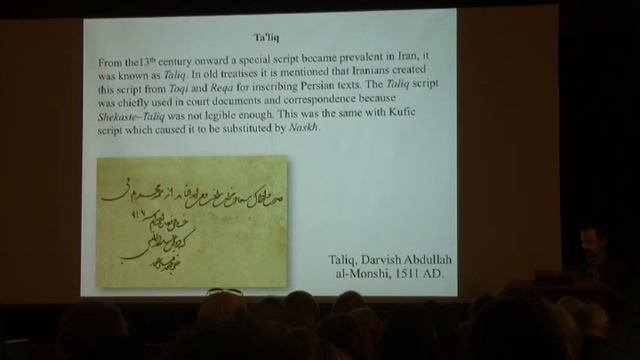 Ta'liq
From the13th century onward a special script became prevalent in Iran, it
was known as Taliq. In old treatises it is mentioned that Iranians created
this script from Toqi and Reqa for inscribing Persian texts. The Taliq script
was chiefly used in court documents and correspondence because
Shekaste–Taliq was not legible enough. This was the same with Kufic
script which caused it to be substituted by Naskh.
Taliq, Darvish Abdullah
al-Monshi, 1511 AD.